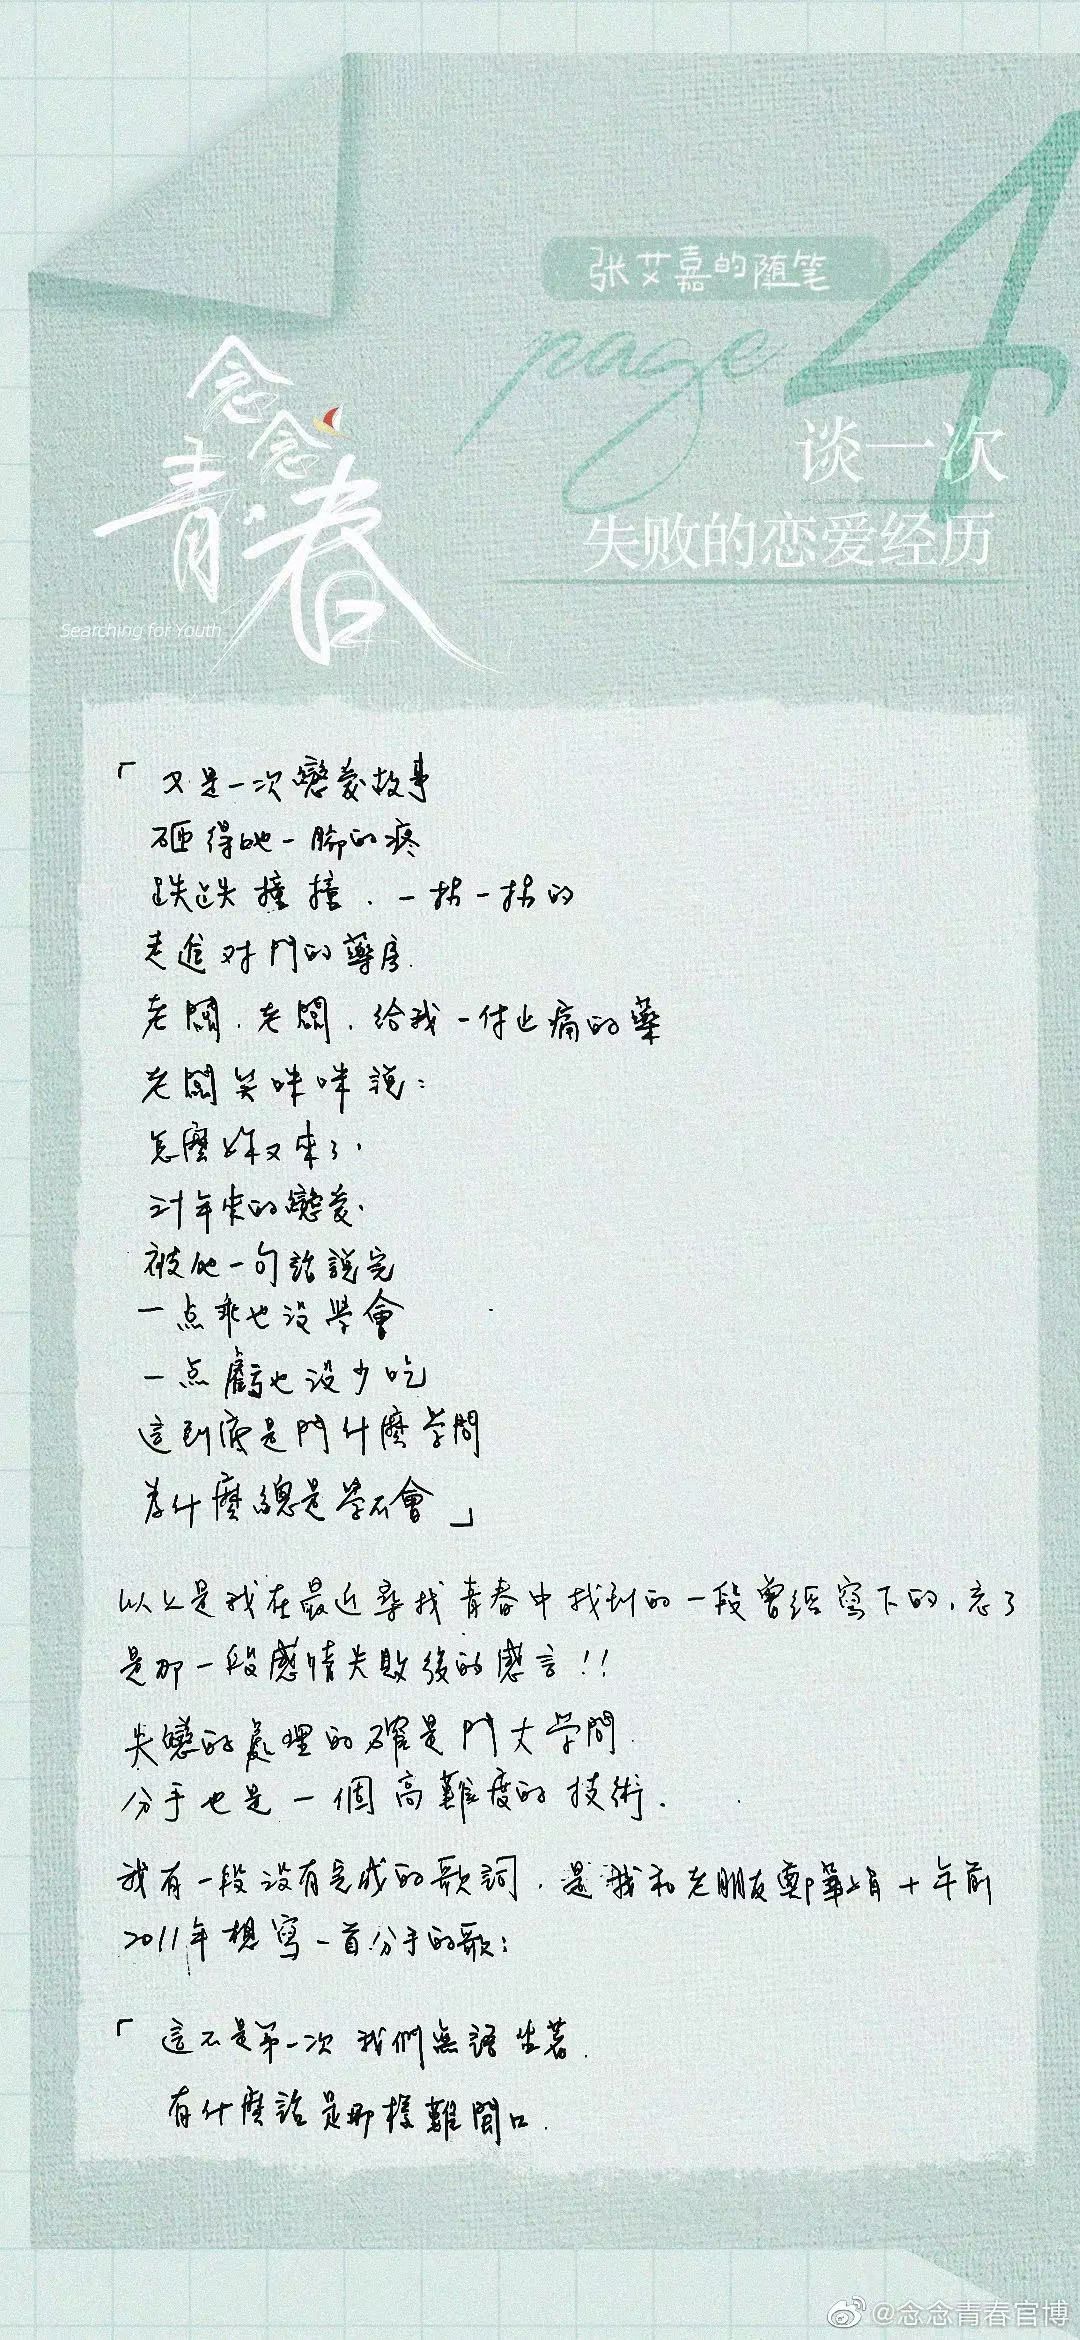 张艾嘉的随笔
page 4
念念青春
Searching for Youth
谈一次
失败的恋爱经历
「又是一次戀愛故事
砸得她一腳的疼
跌跌撞撞.一拐一拐的
走進对門的藥房.
老闆.老闆.给我一付止痛的藥
老闆笑咪咪說:
怎麼妳又來了.
二十年來的戀愛.
被他一句話說完
一点乖也没學會
一点虧也没少吃
這到底是門什麼学問
為什麼總是學不會」
以上是我在最近尋找青春中找到的一段曾经寫下的,忘了
是那一段感情失敗後的感言!!
失戀的處理的確是門大学問.
分手也是一個高難度的技術.
我有一段没有完成的歌詞.是我和老朋友鄭華娟十年前
2011年想寫一首分手的歌:
「這不是第一次我們無語坐著.
有什麼話是那樣難開口.
@念念青春官博